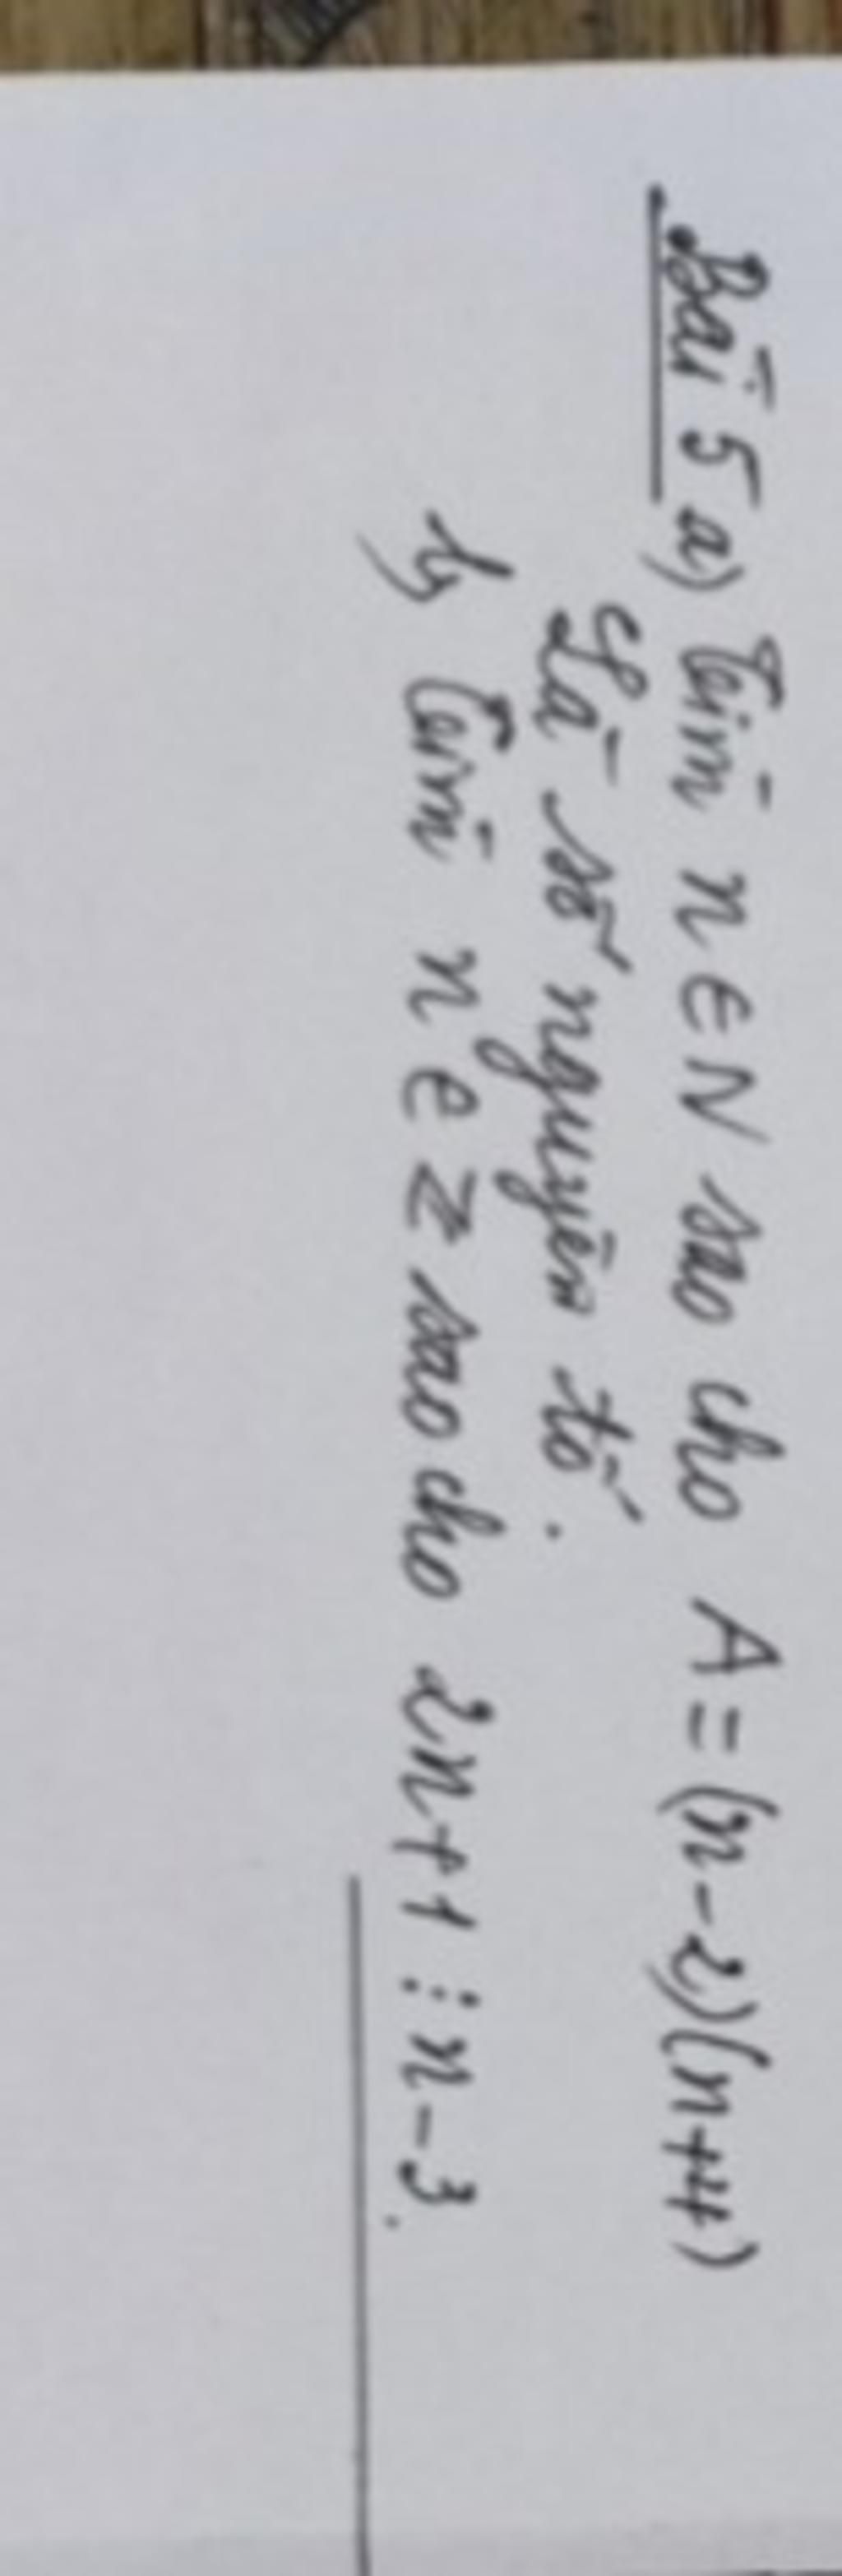 Bài 5 a) Tìm n ∈ N sao cho A = (n-2)(n+4)
Là số nguyên tố.
b) Tìm n ∈ Z sao cho 2n+1 ⋮ n-3.